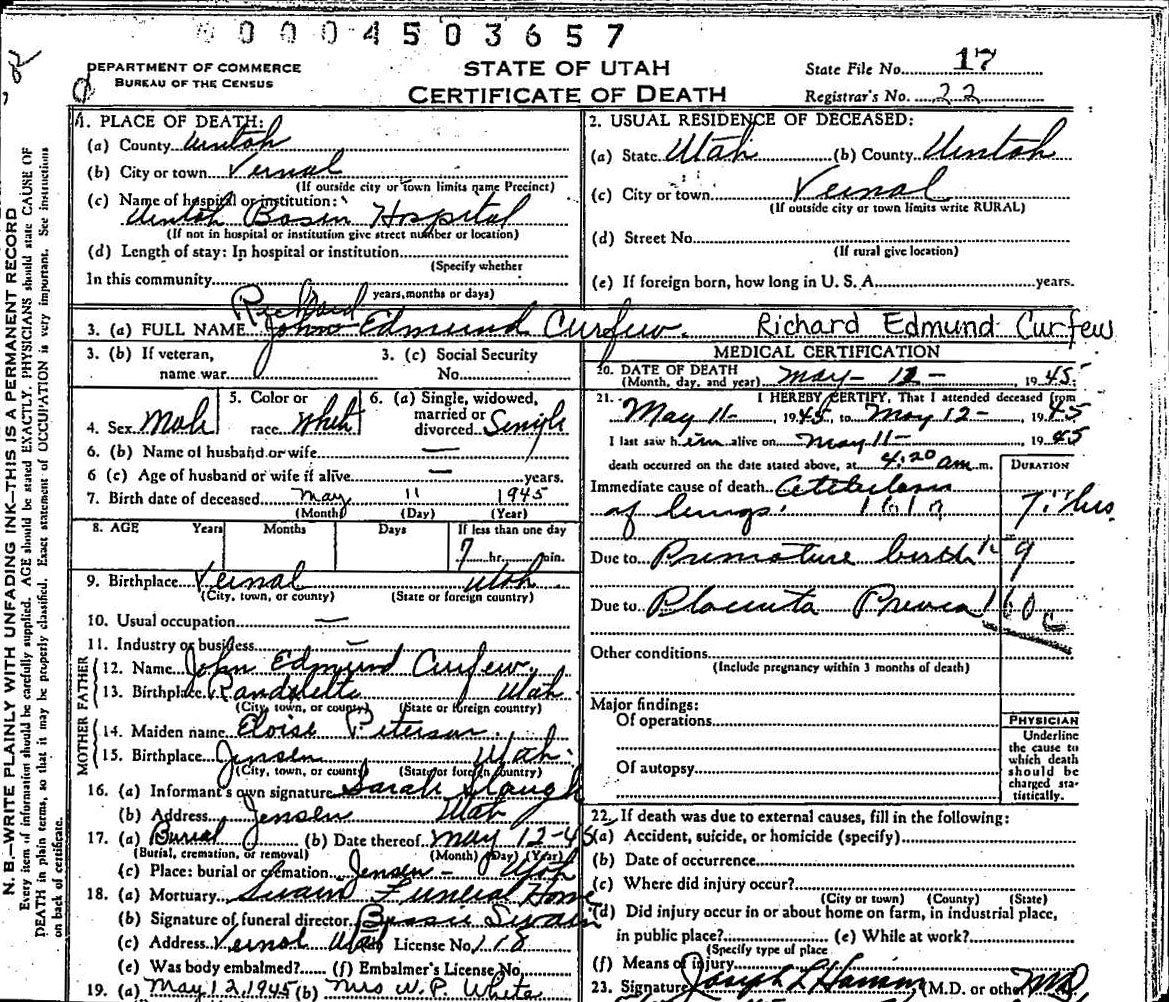 0 0 0 4 5 0 3 6 5 7
DEPARTMENT OF COMMERCE
BUREAU OF THE CENSUS
STATE OF UTAH
CERTIFICATE OF DEATH
State File No. 17
Registrar's No. 22
N. B.—WRITE PLAINLY WITH UNFADING INK—THIS IS A PERMANENT RECORD
Every item of information should be carefully supplied. AGE should be stated EXACTLY. PHYSICIANS should state CAUSE OF
DEATH in plain terms, so that it may be properly classified. Exact statement of OCCUPATION is very important. See instructions
on back of certificate.
1. PLACE OF DEATH:
(a) County Uintah
(b) City or town Vernal
(If outside city or town limits name Precinct)
(c) Name of hospital or institution:
Uintah Basin Hospital
(If not in hospital or institution give street number or location)
(d) Length of stay: In hospital or institution
(Specify whether
In this community
years, months or days)
2. USUAL RESIDENCE OF DECEASED:
(a) State Utah (b) County Uintah
(c) City or town Vernal
(If outside city or town limits write RURAL)
(d) Street No.
(If rural give location)
(e) If foreign born, how long in U. S. A. years.
Richard
3. (a) FULL NAME John Edmund Curfew. Richard Edmund Curfew
3. (b) If veteran,
name war
3. (c) Social Security
No.
4. Sex Male
5. Color or
race White
6. (a) Single, widowed,
married or
divorced Single
6. (b) Name of husband or wife —
6 (c) Age of husband or wife if alive — years.
7. Birth date of deceased May 11 1945
(Month) (Day) (Year)
8. AGE Years Months Days If less than one day
7 hr. min.
9. Birthplace Vernal Utah
(City, town, or county) (State or foreign country)
10. Usual occupation —
11. Industry or business —
FATHER
12. Name John Edmund Curfew.
13. Birthplace Randelette Utah
(City, town, or county) (State or foreign country)
MOTHER
14. Maiden name Eloise Peterson.
15. Birthplace Jensen Utah
(City, town, or county) (State or foreign country)
16. (a) Informant's own signature Sarah Slaugh
(b) Address Jensen Utah
17. (a) Burial (b) Date thereof May 12-45
(Burial, cremation, or removal) (Month) (Day) (Year)
(c) Place: burial or cremation Jensen - Utah
18. (a) Mortuary Swain Funeral Home
(b) Signature of funeral director Bessie Swain
(c) Address Vernal Utah License No. 118
(e) Was body embalmed? (f) Embalmer's License No.
19. (a) May 12, 1945 (b) Mrs W. P. White
MEDICAL CERTIFICATION
20. DATE OF DEATH
(Month, day, and year) May - 12 - , 1945.
21. I HEREBY CERTIFY, That I attended deceased from
May 11- , 1945, to May 12- , 1945
I last saw him alive on May 11- , 1945
death occurred on the date stated above, at 4:20 am m.
DURATION
Immediate cause of death Atelectasis
of lungs. 7 hrs.
Due to Premature birth
Due to Placenta Previa 160c
Other conditions
(Include pregnancy within 3 months of death)
Major findings:
Of operations
Of autopsy
PHYSICIAN
Underline
the cause to
which death
should be
charged sta-
tistically.
22. If death was due to external causes, fill in the following:
(a) Accident, suicide, or homicide (specify)
(b) Date of occurrence
(c) Where did injury occur?
(City or town) (County) (State)
(d) Did injury occur in or about home on farm, in industrial place,
in public place? (e) While at work?
(Specify type of place
(f) Means of injury
23. Signature Joseph L Hamm (M.D. or other) MD